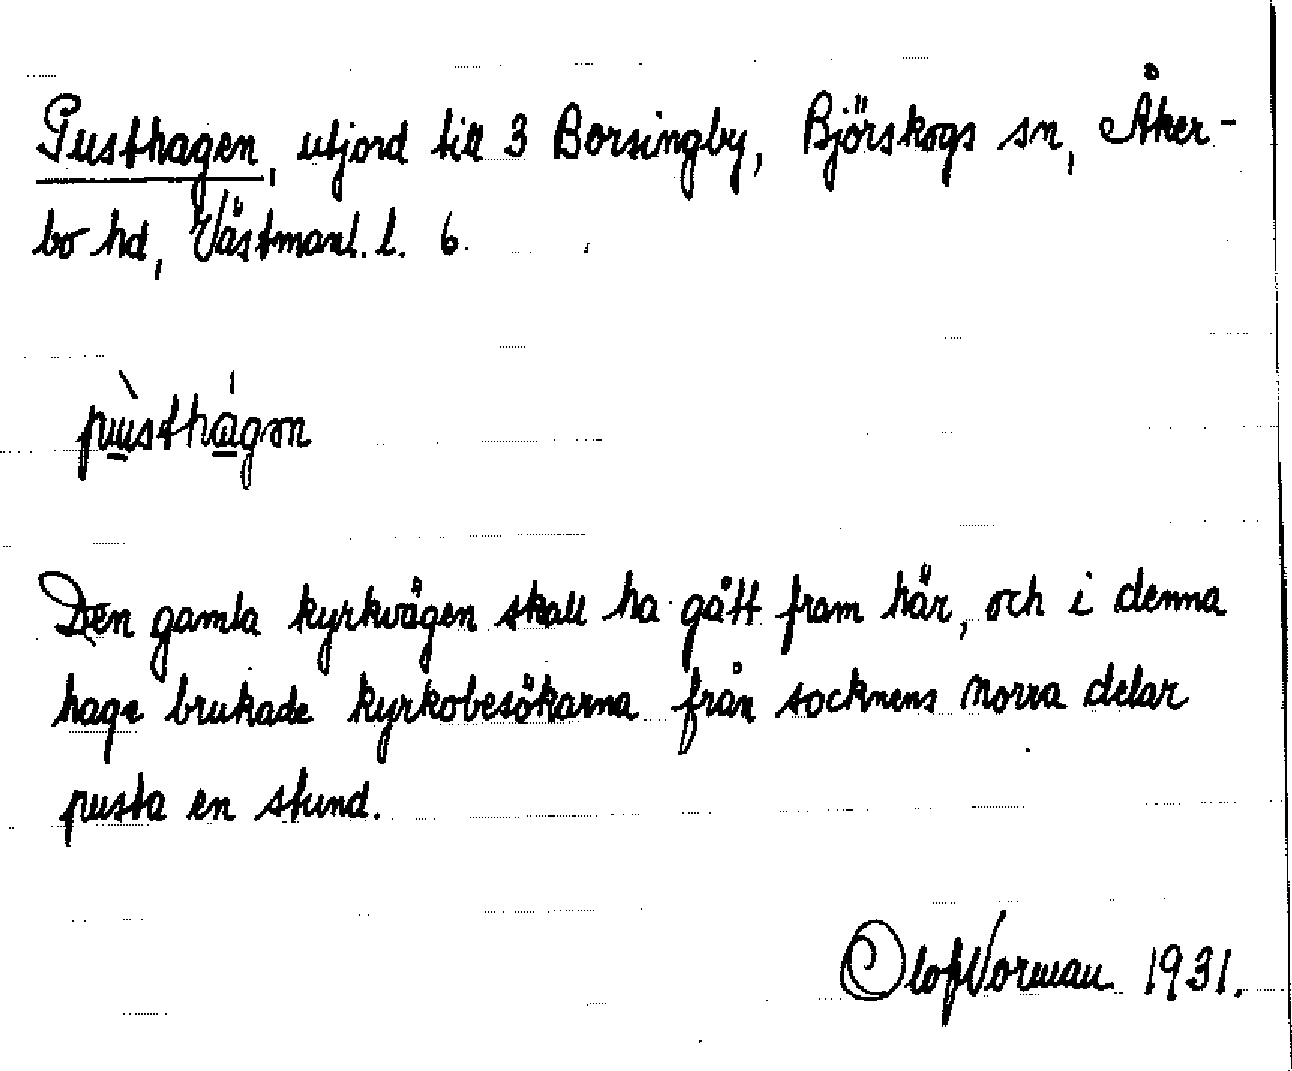 Pusthagen, utjord till 3 Borsingby, Björskogs sn, Åker-
bo hd, Västmanl. l. 6.
pùsthágən
Den gamla kyrkvägen skall ha gått fram här, och i denna
hage brukade kyrkobesökarna från socknens norra delar
pusta en stund.
Olof Norman 1931.